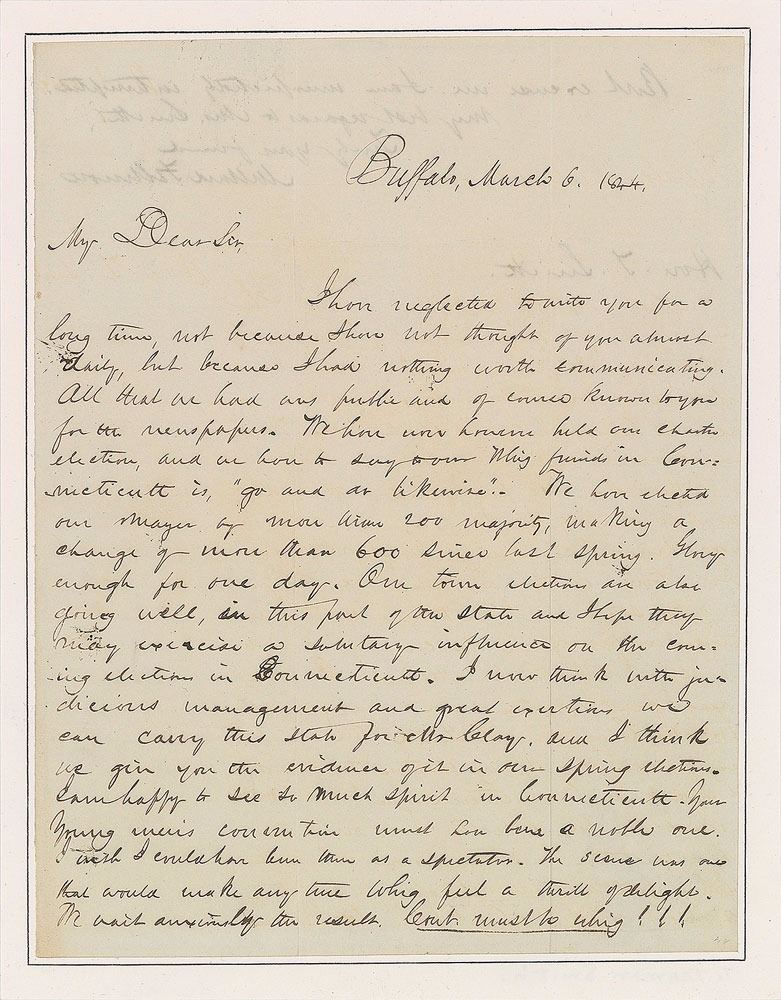 Buffalo, March 6. 1844.
My Dear Sir,
I have neglected to write you for a
long time, not because I have not thought of you almost
daily, but because I had nothing worth communicating.
All that we had was public and of course known to you
for the newspapers. We have now however held our charter
election, and we have to say to our Whig friends in Con=
necticutt is, "go and do likewise".- We have elected
our Mayor by more than 200 majority, making a
change of more than 600 since last spring. Glory
enough for one day. Our town elections are also
going well, in this part of the state and I hope they
may exercise a salutary influence on the com=
ing elections in Connecticutt. I now think with ju=
dicious management and great exertions we
can carry this state for Mr Clay, and I think
we give you the evidence of it in our spring elections.
I am happy to see so much spirit in Connecticutt. Your
Young men's convention must have been a noble one.
I wish I could have been there as a spectator. The scene was one
that would make any true Whig feel a thrill of delight.
We wait anxiously the result. Cont. must be whig!!!
My best regards to Mrs Smith,
Truly yours
Millard Fillmore
Hon. T. Smith.